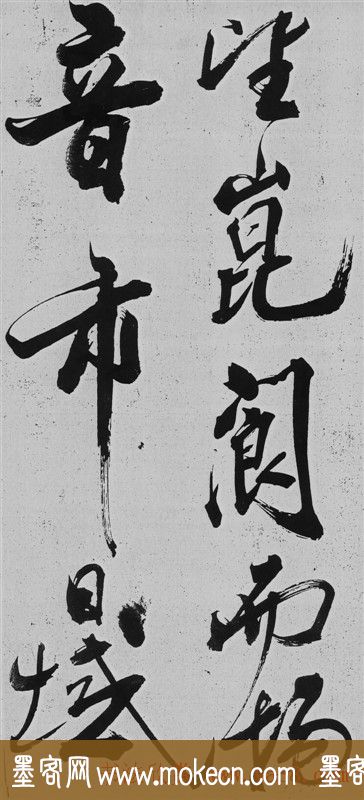 望崑閬而揚
音帀日域
墨客网 www.mokecn.com 墨客网